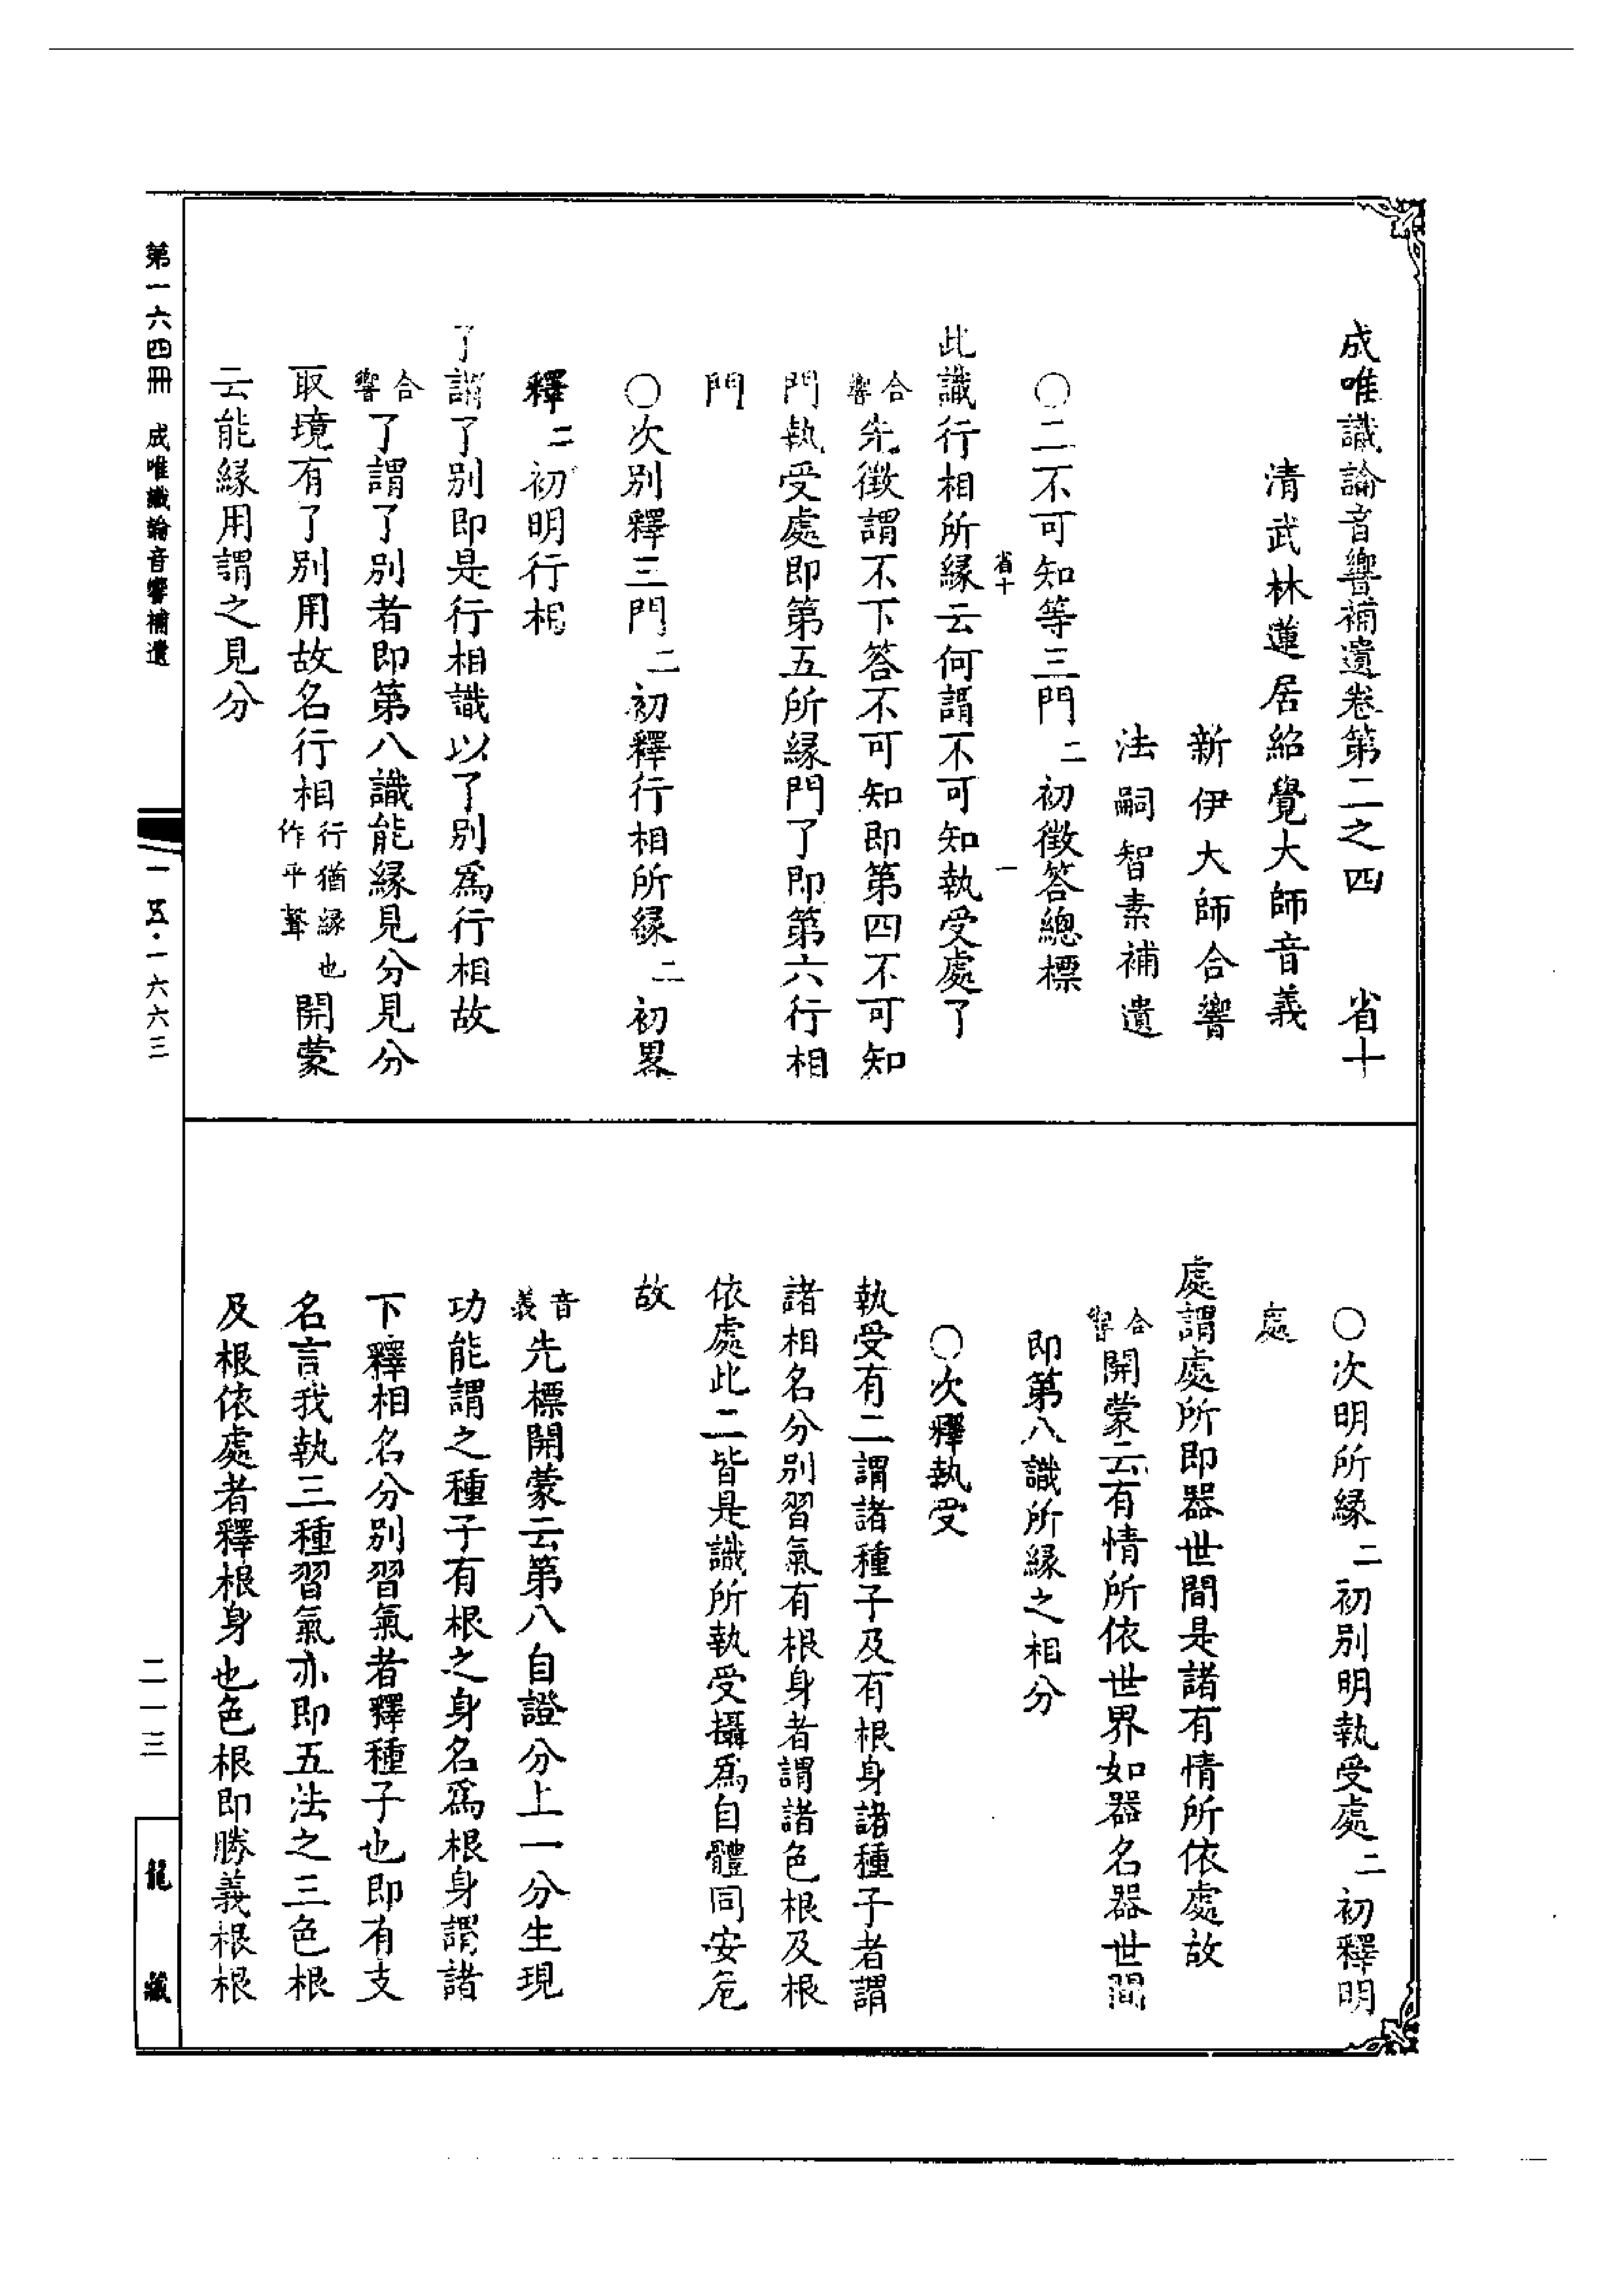 成唯識論音響補遺卷第二之四 省十
清武林蓮居紹覺大師音義
新伊大師合響
法嗣智素補遺
○二不可知等三門二初徵答總標
省十 一
此識行相所緣云何謂不可知執受處了
合響先徵謂不下答不可知即第四不可知
門執受處即第五所緣門了即第六行相
門
○次別釋三門二初釋行相所緣二初畧
釋二初明行相
了謂了別即是行相識以了別爲行相故
合響了謂了別者即第八識能緣見分見分
取境有了別用故名行相行猶緣也作平聲開蒙
云能緣用謂之見分
○次明所緣二初別明執受處二初釋明
處
處謂處所即器世間是諸有情所依處故
合響開蒙云有情所依世界如器名器世間
即第八識所緣之相分
○次釋執受
執受有二謂諸種子及有根身諸種子者謂
諸相名分別習氣有根身者謂諸色根及根
依處此二皆是識所執受攝爲自體同安危
故
音義先標開蒙云第八自證分上一分生現
功能謂之種子有根之身名爲根身謂諸
下釋相名分別習氣者釋種子也即有支
名言我執三種習氣亦即五法之三色根
及根依處者釋根身也色根即勝義根根
第一六四冊 成唯識論音響補遺
一五·一六六三
二一三
龍藏